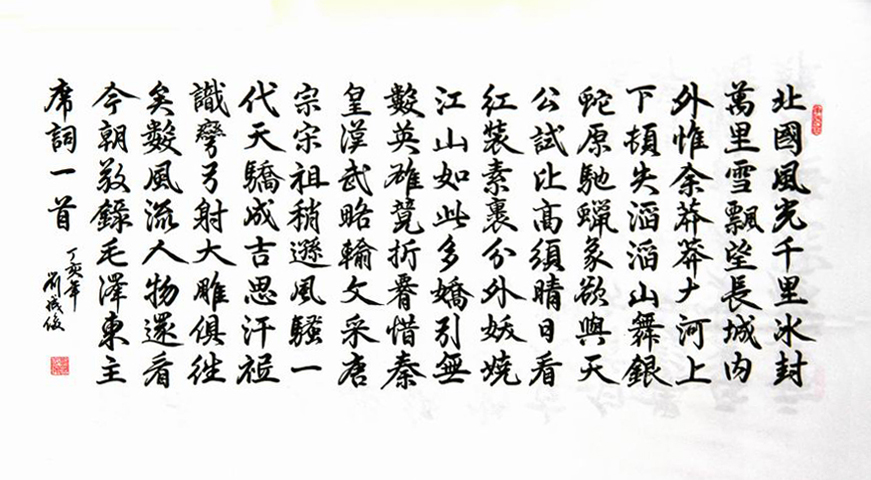 北國風光千里冰封
萬里雪飄望長城内
外惟余莽莽大河上
下頓失滔滔山舞銀
蛇原馳蠟象欲與天
公試比高須晴日看
紅裝素裹分外妖嬈
江山如此多嬌引無
數英雄競折腰惜秦
皇漢武略輸文采唐
宗宋祖稍遜風騷一
代天驕成吉思汗祗
識彎弓射大雕俱往
矣數風流人物還看
今朝敬錄毛澤東主
席詞一首
丁亥年
劉